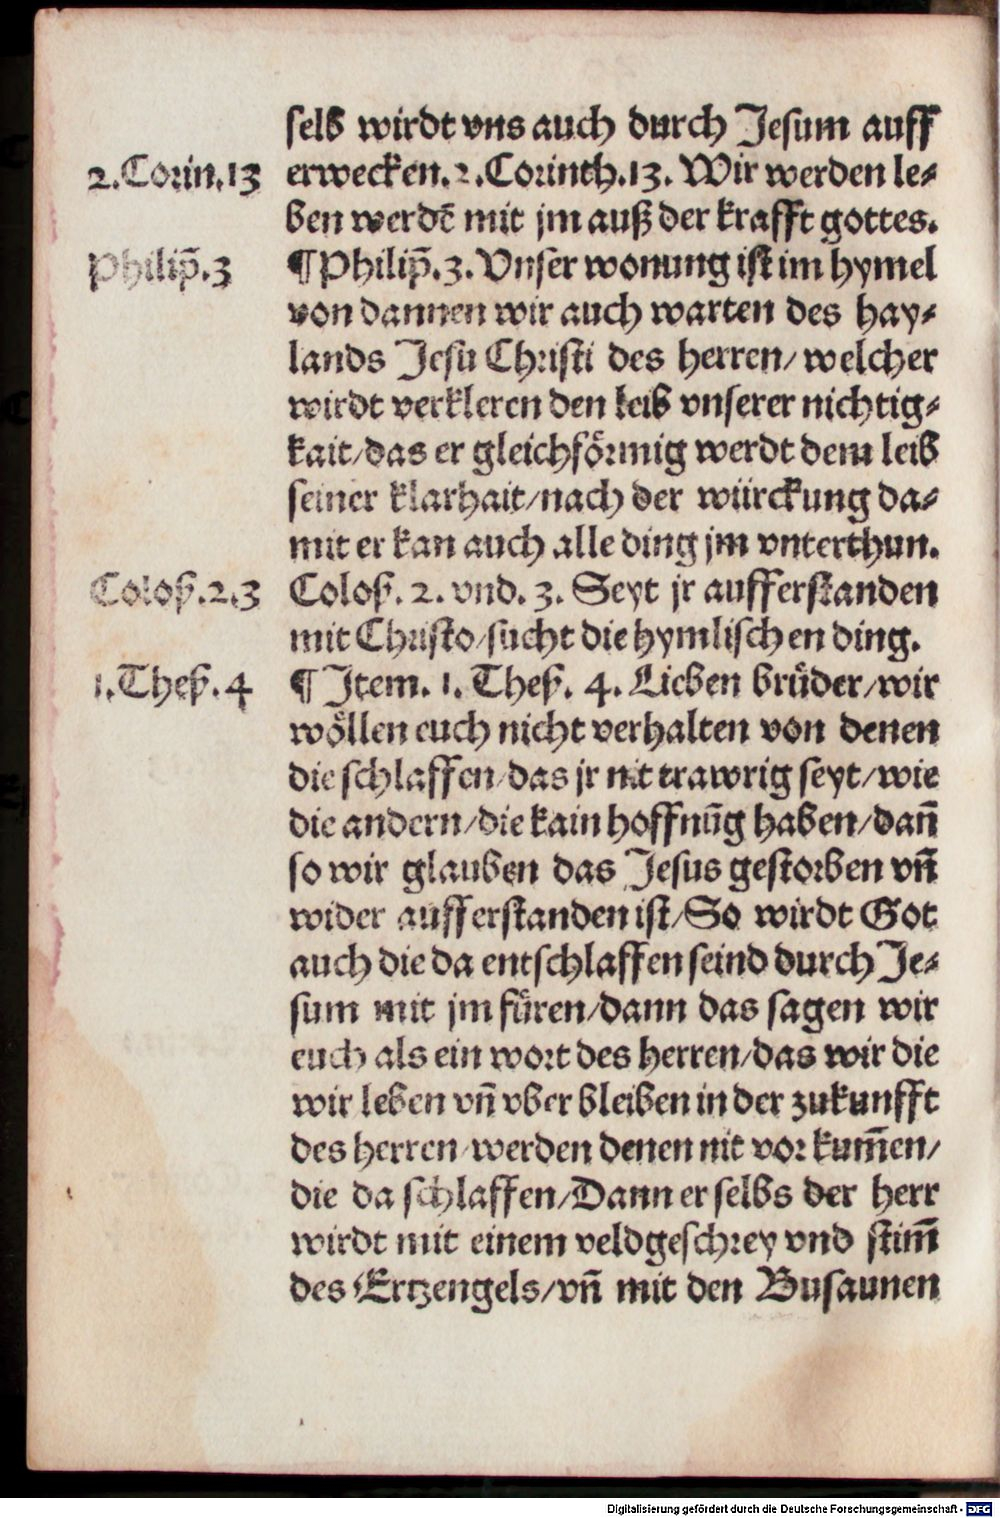 selb wirdt vns auch durch Jesum auff
2.Corin.13 erwecken.2.Corinth.13. Wir werden le⸗
ben werdē mit jm auß der krafft gottes.
Philip̄.3 ¶Philip̄.3. Vnser wonung ist im hymel
von dannen wir auch warten des hay⸗
lands Jesu Christi des herren/ welcher
wirdt verkleren den leib vnserer nichtig⸗
kait/das er gleichförmig werdt dem leib
seiner klarhait/nach der würckung da⸗
mit er kan auch alle ding jm vnterthun.
Coloß.2.3 Coloß. 2. vnd. 3. Seyt jr aufferstanden
mit Christo/sucht die hymlischen ding.
1.Theß.4 ¶ Jtem. 1. Theß. 4. Lieben brüder/wir
wöllen euch nicht verhalten von denen
die schlaffen/das jr nit trawrig seyt/wie
die andern/die kain hoffnūg haben/dañ
so wir glauben das Jesus gestorben vñ
wider aufferstanden ist/So wirdt Got
auch die da entschlaffen seind durch Je⸗
sum mit jm füren/dann das sagen wir
euch als ein wort des herren/das wir die
wir leben vñ vber bleiben in der zukunfft
des herren/werden denen nit vor kum̄en/
die da schlaffen/Dann er selbs der herr
wirdt mit einem veldgeschrey vnd stim̄
des Ertzengels/vñ mit den Busaunen
Digitalisierung gefördert durch die Deutsche Forschungsgemeinschaft - DFG